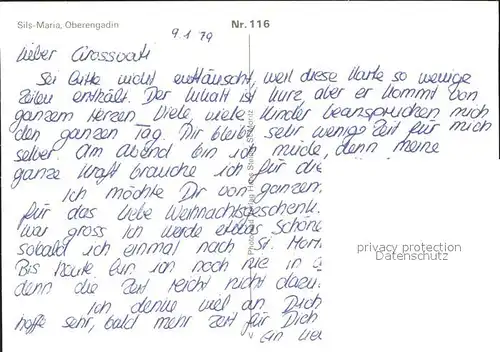 Sils-Maria, Oberengadin
Nr. 116
9.1.79
Lieber Grossvati
Sei bitte nicht enttäuscht, weil diese Karte so wenige
Zeilen enthält. Der Inhalt ist kurz, aber er kommt von
ganzem Herzen. Viele, viele Kinder beanspruchen mich
den ganzen Tag. Mir bleibt sehr wenig Zeit für mich
selber. Am Abend bin ich müde, denn meine
ganze Kraft brauche ich für die
Ich möchte Dir von ganzem
für das liebe Weihnachtsgeschenk.
war gross. Ich werde etwas Schöne
sobald ich einmal nach St. Mori
Bis heute bin ich noch nie in
denn die Zeit reicht nicht dazu.
Ich denke viel an Dich
hoffe sehr, bald mehr Zeit für Dich
Ein lieb
privacy protection
DarmStreets